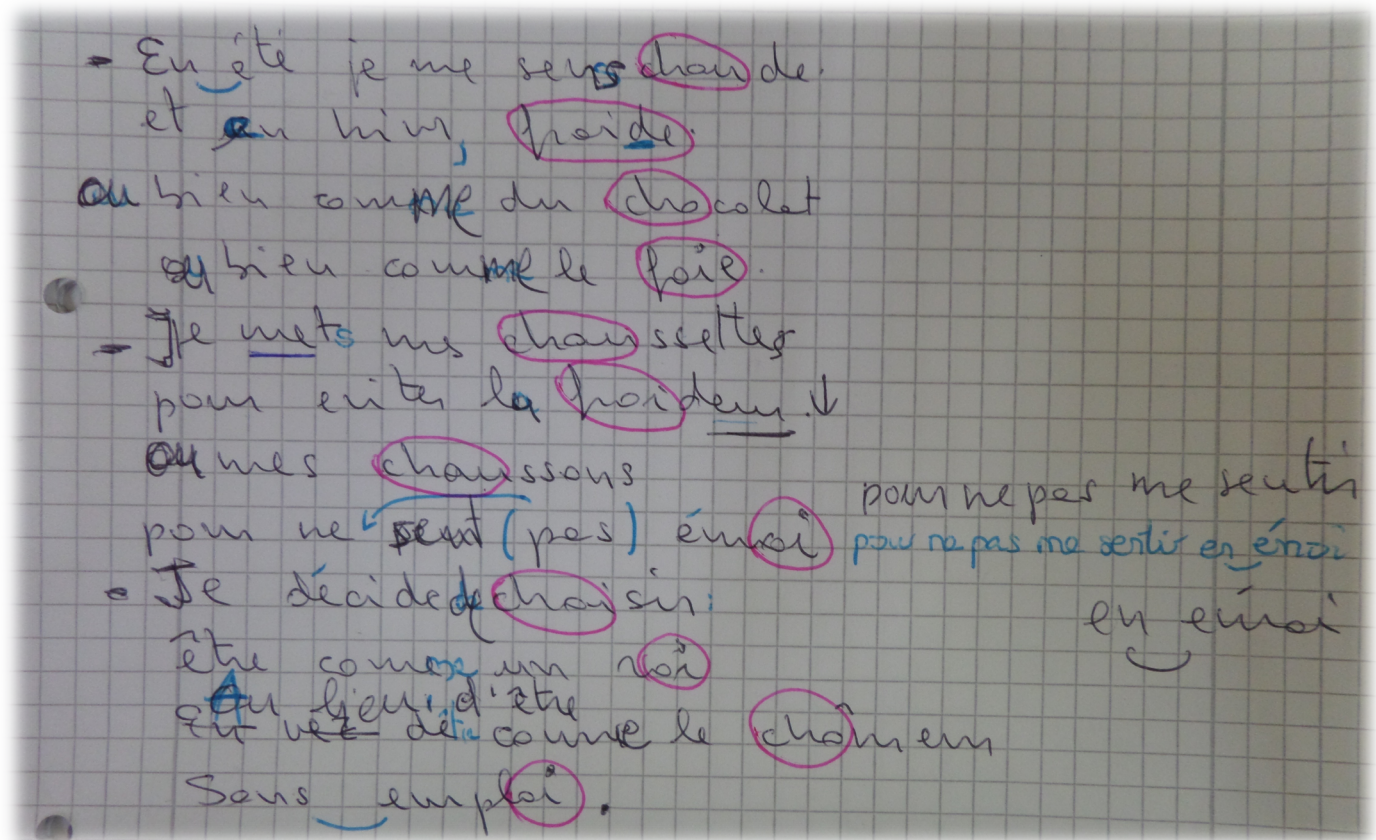 - En été je me sens chaude.
et en hiver, froide.
ou bien comme du chocolat
ou bien comme le foie.
- Je mets mes chaussettes
pour eviter la froideur. ↓
ou mes chaussons
pour ne sent (pas) émoi pour ne pas me sentir
pour ne pas me sentir en émoi
en émoi
- Je décide de choisir:
être comme un roi
Au lieu d'être
En vez dêtre comme le chômeur
Sans emploi.